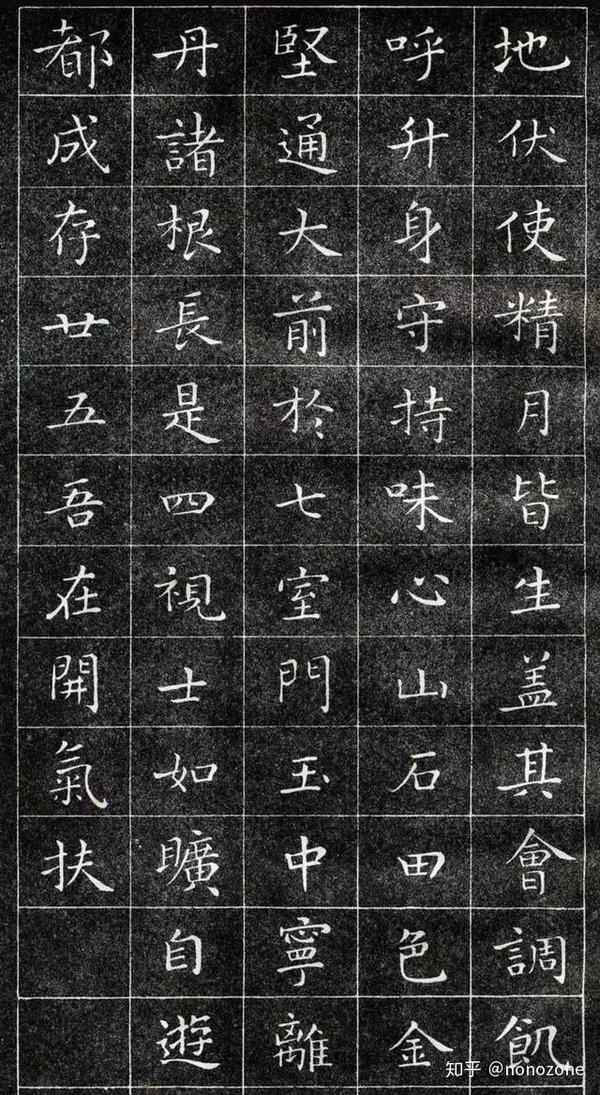 地伏使精月皆生盖其會調飢
呼升身守持味心山石田色金
堅通大前於七室門玉中寧離
丹諸根長是四視士如曠自遊
都成存廿五吾在開氣扶
知乎 @nonozone